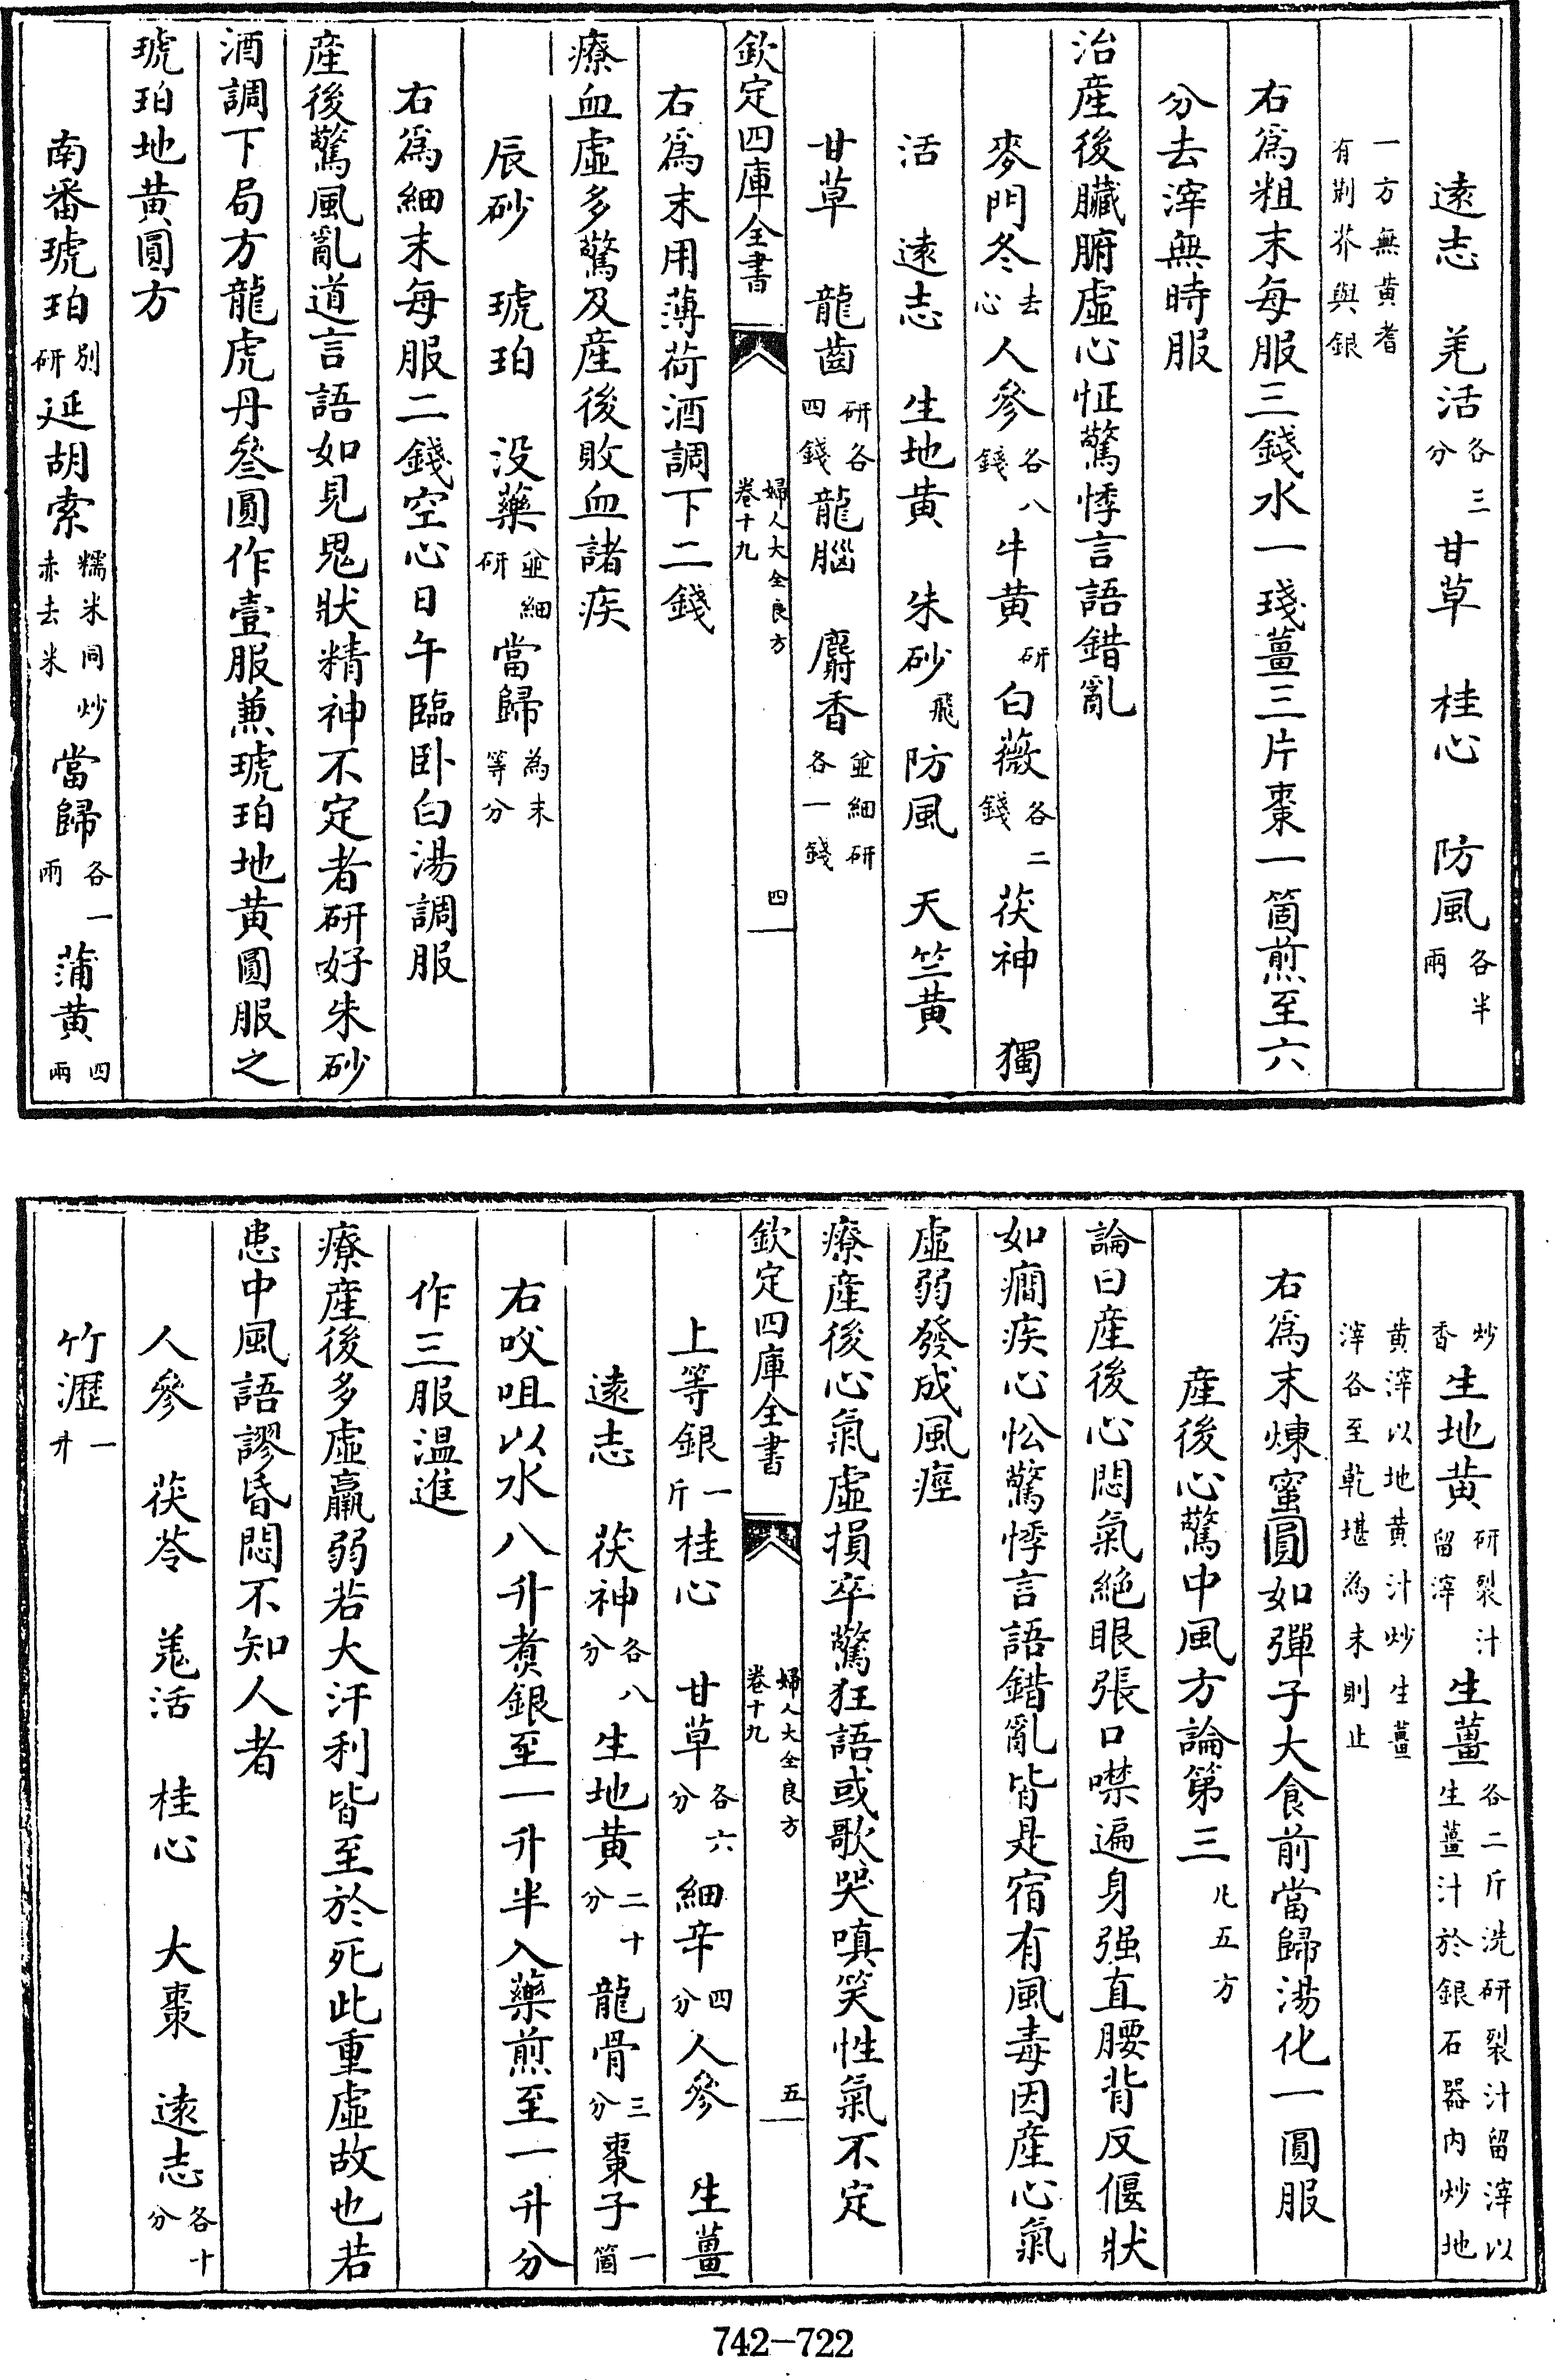 遠志　羌活各三分甘草　桂心　防風各半兩
一方無黃耆有荆芥與銀
右為粗末每服三錢水一琖薑三片棗一箇煎至六
分去滓無時服
治産後臟腑虚心怔驚悸言語錯亂
麥門冬去心人參各八錢牛黄研白薇各二錢茯神　獨
活　遠志　生地黄　朱砂飛防風　天竺黄
甘草　龍齒研各四錢龍腦　麝香並細研各一錢
欽定四庫全書　婦人大全良方卷十九　四
右為末用薄荷酒調下二錢
療血虚多驚及産後敗血諸疾
辰砂　琥珀　没藥並細研當歸為末等分
右為細末每服二錢空心日午臨卧白湯調服
産後驚風亂道言語如見鬼狀精神不定者研好朱砂
酒調下局方龍虎丹叄圓作壹服兼琥珀地黄圓服之
琥珀地黄圓方
南番琥珀别研延胡索糯米同炒赤去米當歸各一兩蒲黄四兩
炒香生地黄研裂汁留滓生薑各二斤洗研裂汁留滓以生薑汁於銀石器内炒地
黄滓以地黄汁炒生薑滓各至乾堪為末則止
右為末煉蜜圓如彈子大食前當歸湯化一圓服
産後心驚中風方論第三凡五方
論曰産後心悶氣絶眼張口噤遍身强直腰背反偃狀
如癎疾心忪驚悸言語錯亂皆是宿有風毒因産心氣
虚弱發成風痙
療産後心氣虚損卒驚狂語或歌哭嗔笑性氣不定
欽定四庫全書　婦人大全良方卷十九　五
上等銀一斤桂心　甘草各六分細辛四分人參　生薑
遠志　茯神各八分生地黄二十分龍骨三分棗子一箇
右㕮咀以水八升煮銀至一升半入藥煎至一升分
作三服温進
療産後多虚羸弱若大汗利皆至於死此重虚故也若
患中風語謬昏悶不知人者
人參　茯苓　羌活　桂心　大棗　遠志各十分
竹瀝一升
742-722